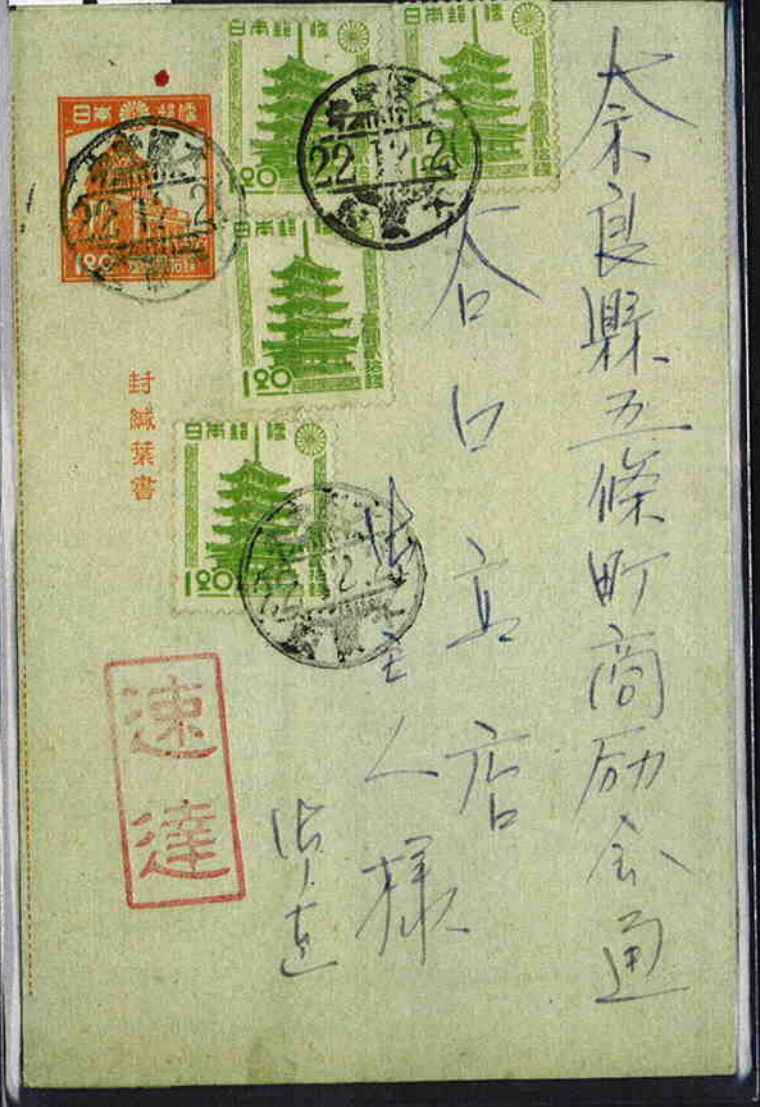 奈良縣五條町商励会通
谷口商店
御主人様
御中
日本郵便
1.20
日本郵便
1.20
日本郵便
1.20
日本郵便
1.20
日本郵便
1.20
22.12.2
22.12.2
22.12.2
封緘葉書
速達